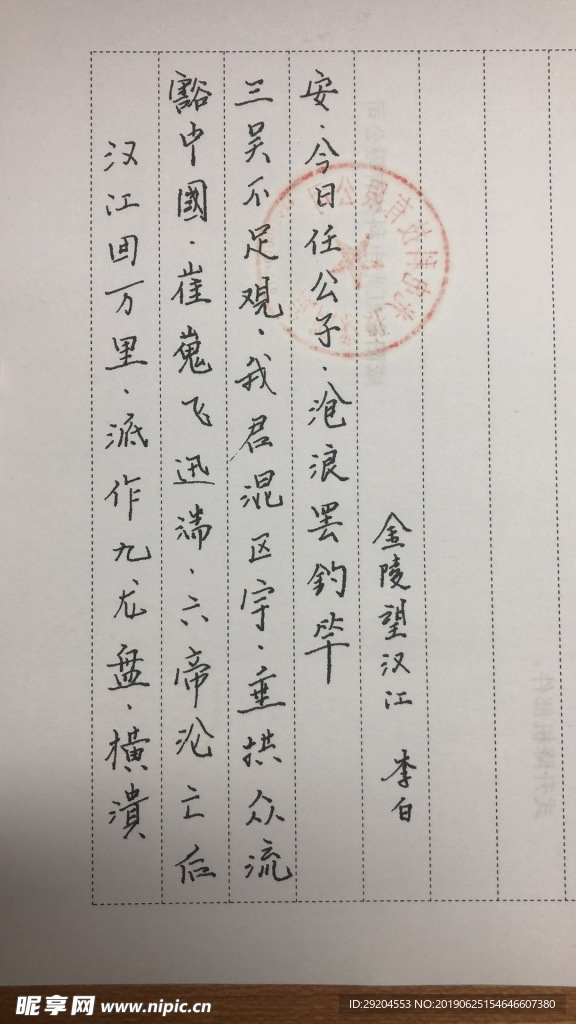 汉江回万里.派作九龙盘.橫潰
豁中國.崔嵬飞迅湍.六帝沦亡后
三吴不足观.我君混区宇.垂拱众流
安.今日任公子.沧浪罢钓竿
金陵望汉江 李白
昵享网 www.nipic.cn
ID:29204553 NO:20190625154646607380